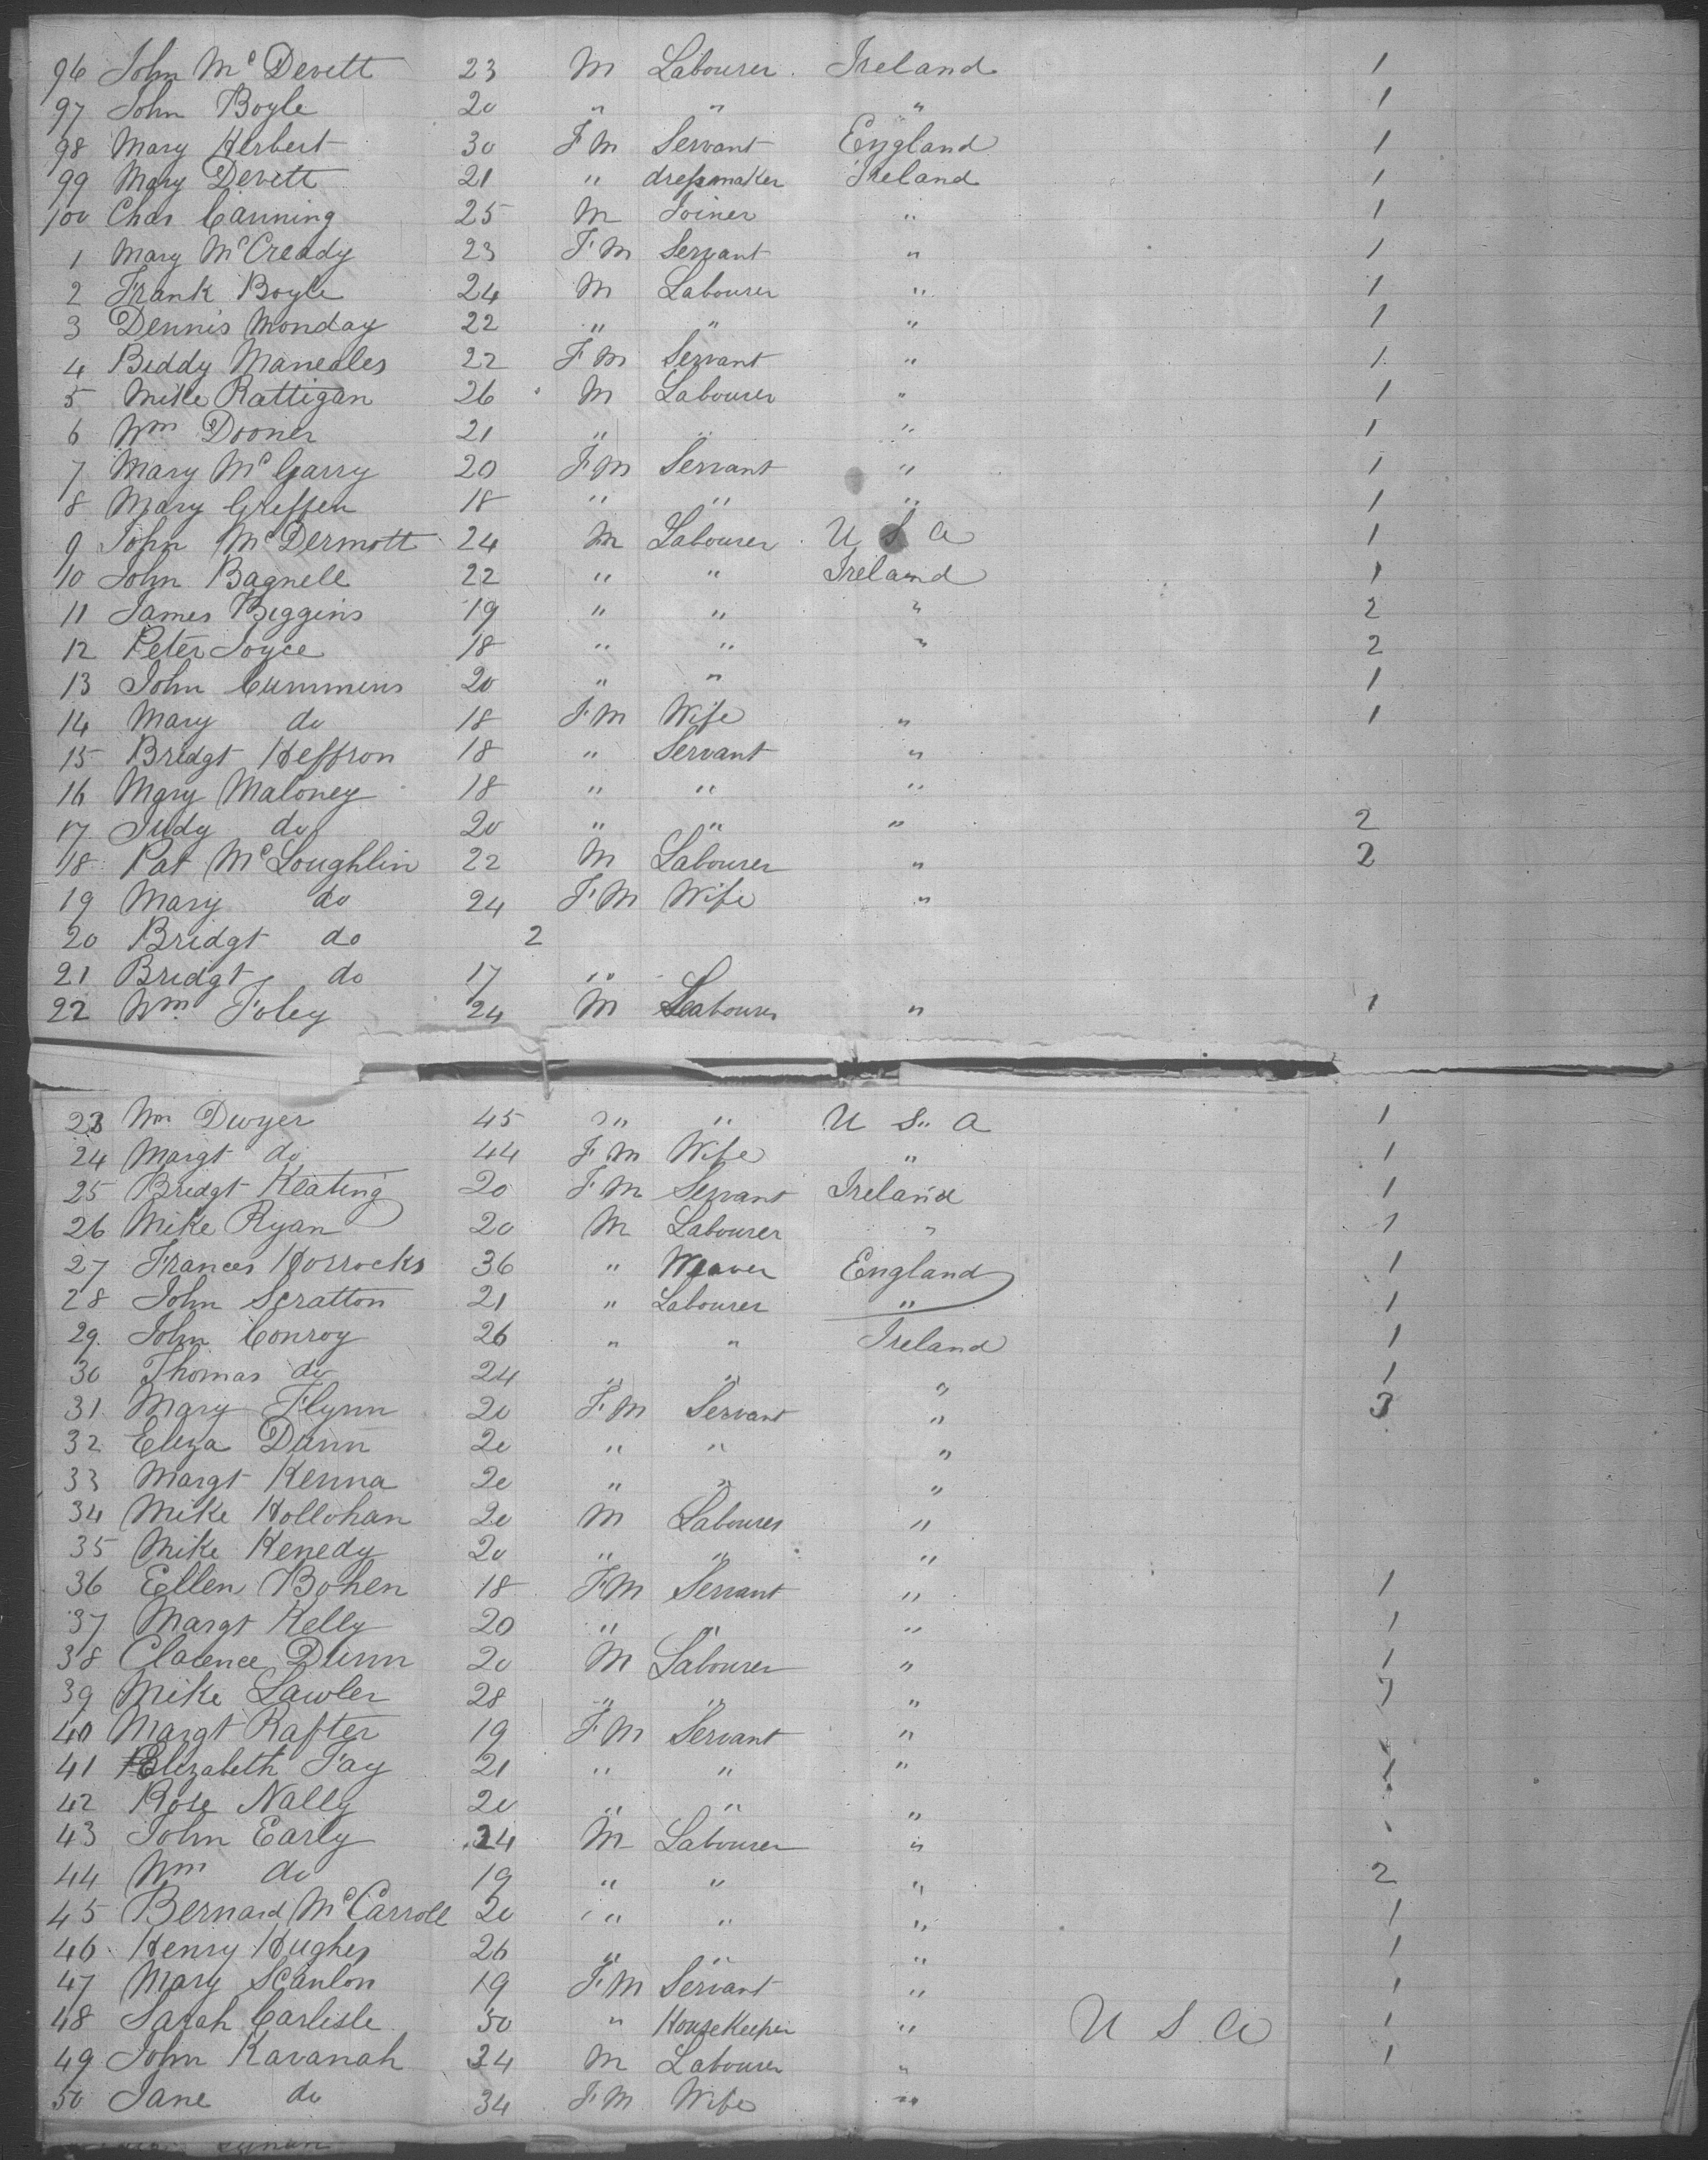 96 John McDevett 23 M Labourer Ireland 1
97 John Boyle 20 " " " 1
98 Mary Herbert 30 FM Servant England 1
99 Mary Devett 21 " dressmaker Ireland 1
100 Chas Canning 25 M Joiner " 1
1 Mary McCready 23 FM Servant " 1
2 Frank Boyle 24 M Labourer " 1
3 Dennis Monday 22 " " " 1
4 Biddy Maneales 22 FM Servant " 1
5 Mike Rattigan 26 M Labourer " 1
6 Wm Dooner 21 " " " 1
7 Mary McGarry 20 FM Servant " 1
8 Mary Griffen 18 " " " 1
9 John McDermott 24 M Labourer U S A 1
10 John Bagnell 22 " " Ireland 1
11 James Biggins 19 " " " 2
12 Peter Joyce 18 " " " 2
13 John Cummins 20 " " 1
14 Mary do 18 FM Wife " 1
15 Bridgt Heffron 18 " Servant "
16 Mary Maloney 18 " " "
17 Judy do 20 " " " 2
18 Pat McLoughlin 22 M Labourer " 2
19 Mary do 24 FM Wife "
20 Bridgt do 2
21 Bridgt do 17 "
22 Wm Foley 24 M Labourer " 1
23 Wm Dwyer 45 " " U S A 1
24 Margt do 44 FM Wife " 1
25 Bridgt Keating 20 FM Servant Ireland 1
26 Mike Ryan 20 M Labourer " 1
27 Frances Horrocks 36 " Weaver England 1
28 John Scratton 21 " Labourer " 1
29 John Conroy 26 " " Ireland 1
30 Thomas do 24 " " " 1
31 Mary Flynn 20 FM Servant " 3
32 Eliza Dunn 20 " " "
33 Margt Kenna 20 " " "
34 Mike Hollohan 20 M Labourer "
35 Mike Kenedy 20 " " "
36 Ellen Bohen 18 FM Servant " 1
37 Margt Kelly 20 " " " 1
38 Clarence Dunn 20 M Labourer " 1
39 Mike Lawler 28 " " "
40 Margt Rafter 19 FM Servant "
41 Elizabeth Fay 21 " " " 1
42 Rose Nally 20 " " "
43 John Early 24 M Labourer "
44 Wm do 19 " " " 2
45 Bernard McCarroll 20 " " " 1
46 Henry Hughes 26 " " " 1
47 Mary Scanlon 19 FM Servant " 1
48 Sarah Carlisle 50 " HouseKeeper " U S A 1
49 John Kavanah 34 M Labourer " 1
50 Jane do 34 FM Wife "